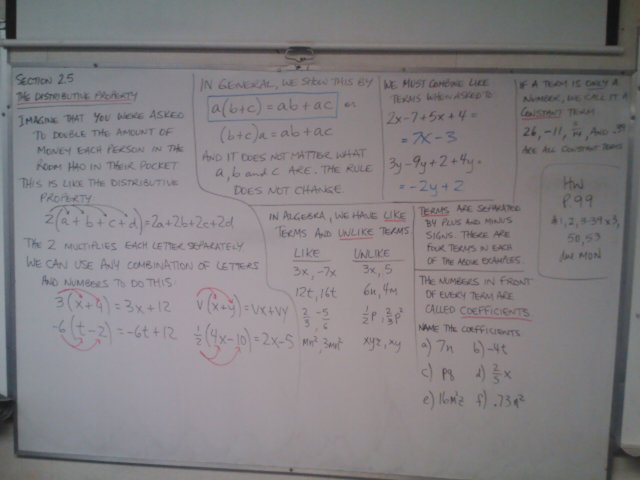 SECTION 2.5
THE DISTRIBUTIVE PROPERTY
IMAGINE THAT YOU WERE ASKED
TO DOUBLE THE AMOUNT OF
MONEY EACH PERSON IN THE
ROOM HAD IN THEIR POCKET.
THIS IS LIKE THE DISTRIBUTIVE
PROPERTY
2(a+b+c+d)=2a+2b+2c+2d
THE 2 MULTIPLIES EACH LETTER SEPARATELY
WE CAN USE ANY COMBINATION OF LETTERS
AND NUMBERS TO DO THIS:
3(x+4)=3x+12
v(x+y)=vx+vy
-6(t-2)=-6t+12
1/2(4x-10)=2x-5
IN GENERAL, WE SHOW THIS BY
a(b+c)=ab+ac or
(b+c)a=ab+ac
AND IT DOES NOT MATTER WHAT
a, b and c ARE. THE RULE
DOES NOT CHANGE.
WE MUST COMBINE LIKE
TERMS WHEN ASKED TO.
2x-7+5x+4=
=7x-3
3y-9y+2+4y=
=-2y+2
IF A TERM IS ONLY A
NUMBER, WE CALL IT A
CONSTANT TERM
26, -11,
AND
ARE ALL CONSTANT TERMS
IN ALGEBRA, WE HAVE LIKE
TERMS AND UNLIKE TERMS
LIKE UNLIKE
3x, -7x 3x, 5
12t, 16t 6n, 4m
2/3, -5/6 1/2p, 2/3p²
mn², 3mn² xyz, xy
TERMS ARE SEPARATED
BY PLUS AND MINUS
SIGNS. THERE ARE
FOUR TERMS IN EACH
OF THE ABOVE EXAMPLES.
THE NUMBERS IN FRONT
OF EVERY TERM ARE
CALLED COEFFICIENTS.
NAME THE COEFFICIENTS
a) 7n b) -4t
c) pq d) 2/5x
e) 16m²z f) .73q²
HW
P.99
#1,2,3-39 x3,
50,53
due MON